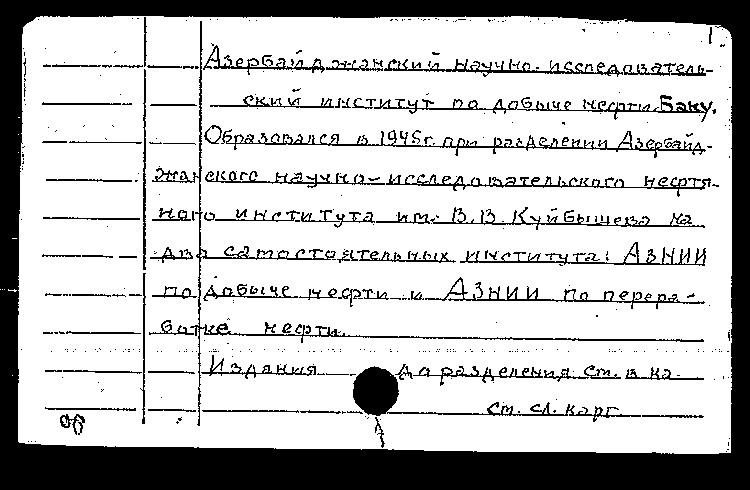 1.
Азербайджанский научно-исследователь-
ский институт по добыче нефти. Баку.
Образовался в 1945 г. при разделении Азербайд-
жанского научно-исследовательского нефтя-
ного института им. В.В. Куйбышева на
два самостоятельных института: АзНИИ
по добыче нефти и АзНИИ по перера-
ботке нефти.
Издания до разделения см. в на-
ст. сл. карт.